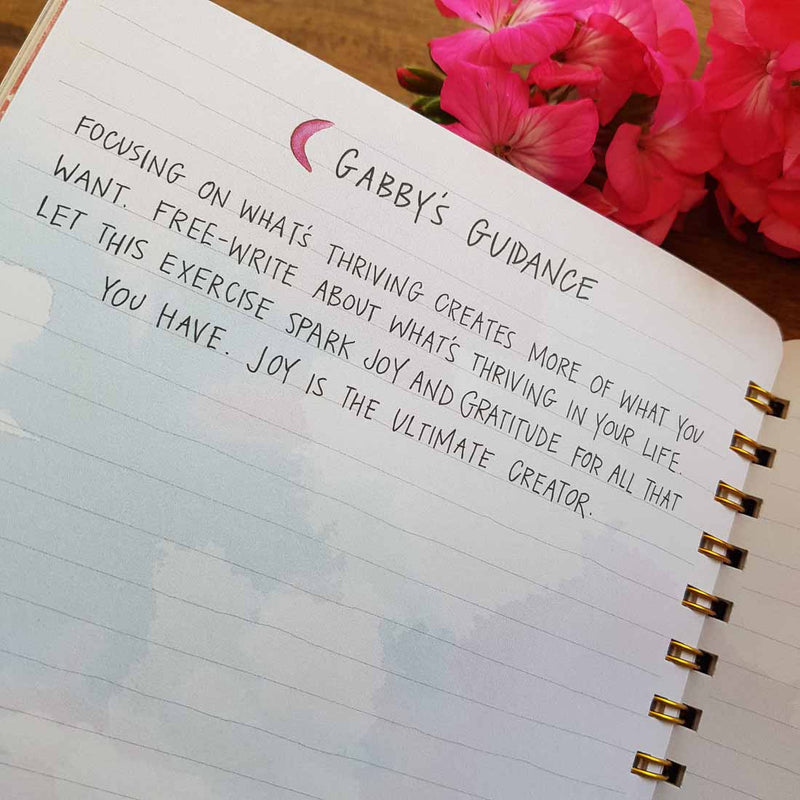 GABBY'S GUIDANCE
FOCUSING ON WHAT'S THRIVING CREATES MORE OF WHAT YOU
WANT. FREE-WRITE ABOUT WHAT'S THRIVING IN YOUR LIFE.
LET THIS EXERCISE SPARK JOY AND GRATITUDE FOR ALL THAT
YOU HAVE. JOY IS THE ULTIMATE CREATOR.